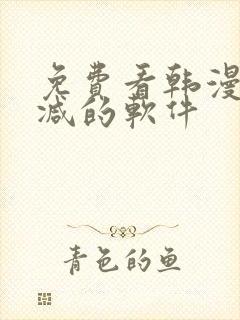 免費看韩漫
减的軟件
青色的鱼